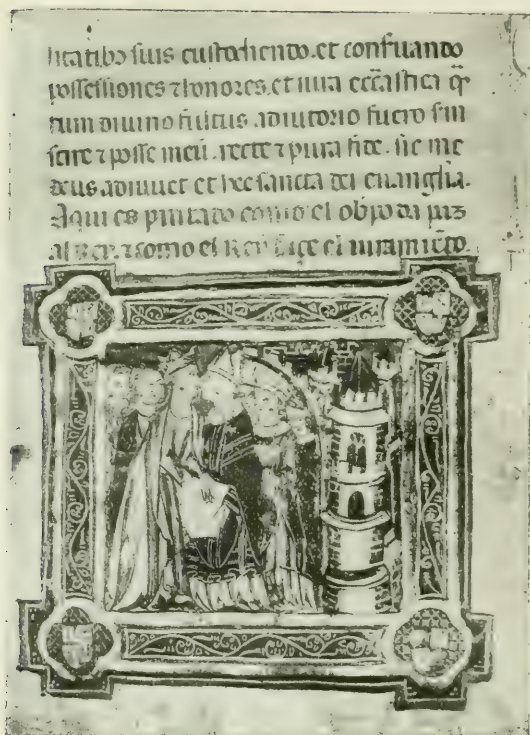 litatibꝰ suis custodiendo. et consꝰuando
possessiones ⁊ honores. et iura ecc̄astica q̄
tum diuino fultus adiutorio fuero ẜm
scire ⁊ posse meū. recte ⁊ pura fide. sic me
deus adiuuet et hec sancta dei euanglia.
Aqui es pintado como el obpo da paz
al Rey. ⁊ como el Rey dize el iuramēto.